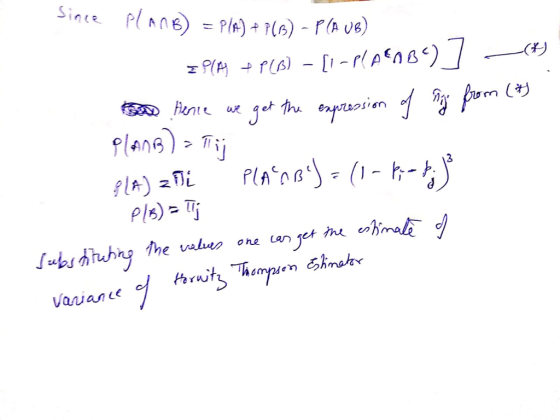 Since P(A∩B) = P(A) + P(B) - P(A∪B)
= P(A) + P(B) - [1 - P(Aᶜ∩Bᶜ)] —(*)
Hence we get the expression of πij from (*)
P(A∩B) = πij
P(A) = πi P(Aᶜ∩Bᶜ) = (1 - pi - pj)³
P(B) = πj
Substituting the values one can get the estimate of
variance of Horwitz Thompson Estimator